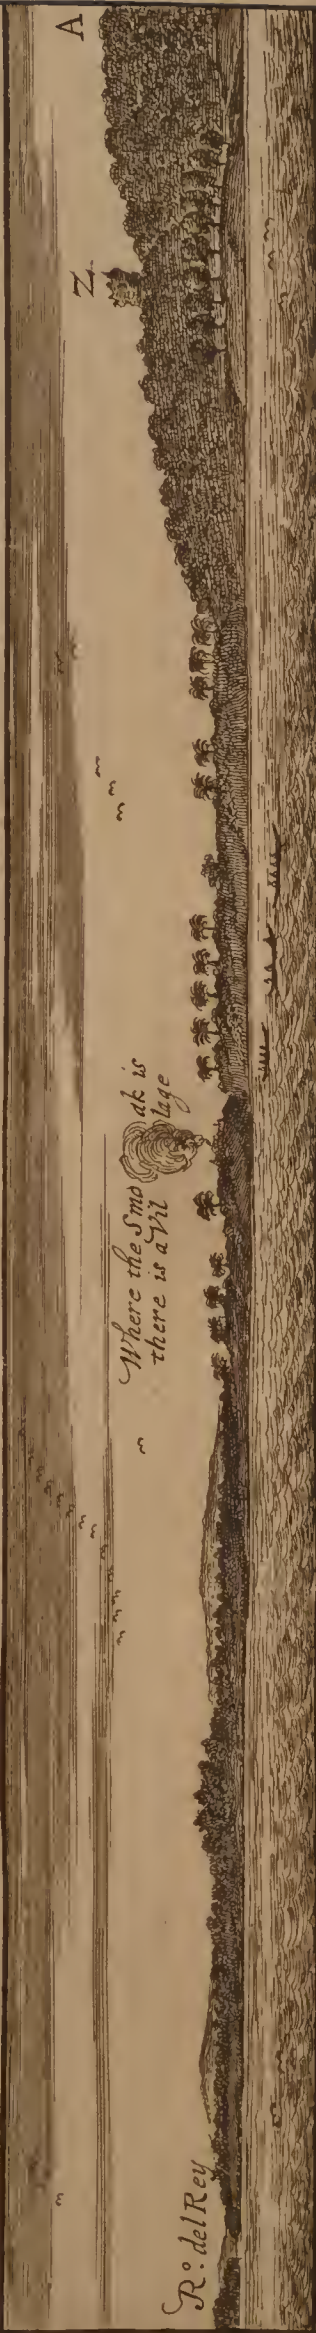 R.º del Rey
Where the Smoak is
there is a Village
Z
A